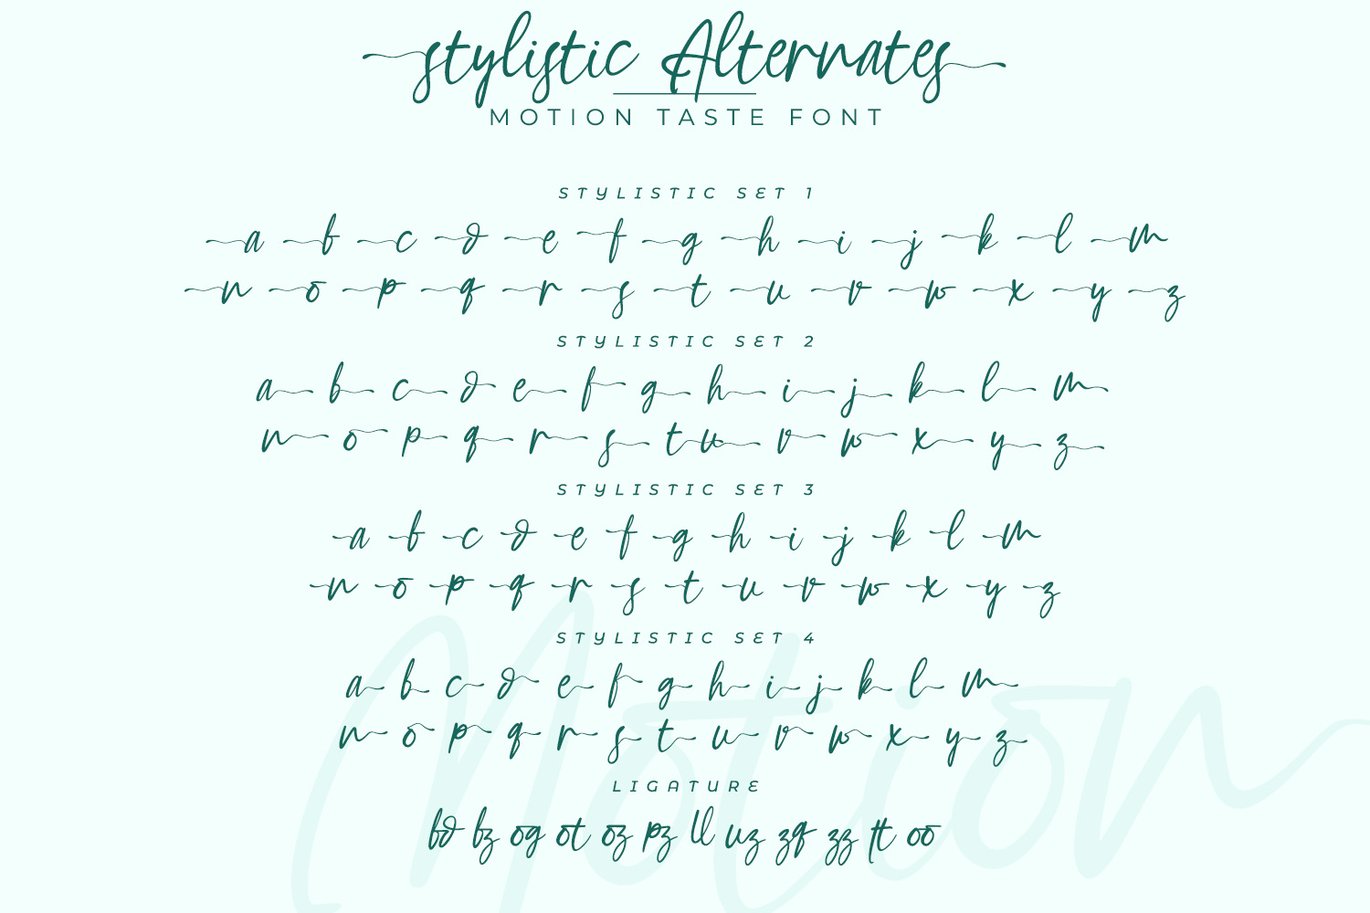 stylistic Alternates
MOTION TASTE FONT
STYLISTIC SET 1
a b c d e f g h i j k l m
n o p q r s t u v w x y z
STYLISTIC SET 2
a b c d e f g h i j k l m
n o p q r s t u v w x y z
STYLISTIC SET 3
a b c d e f g h i j k l m
n o p q r s t u v w x y z
STYLISTIC SET 4
a b c d e f g h i j k l m
n o p q r s t u v w x y z
LIGATURE
bz og ot oz pz ll uz zq zz tt oo
Motion